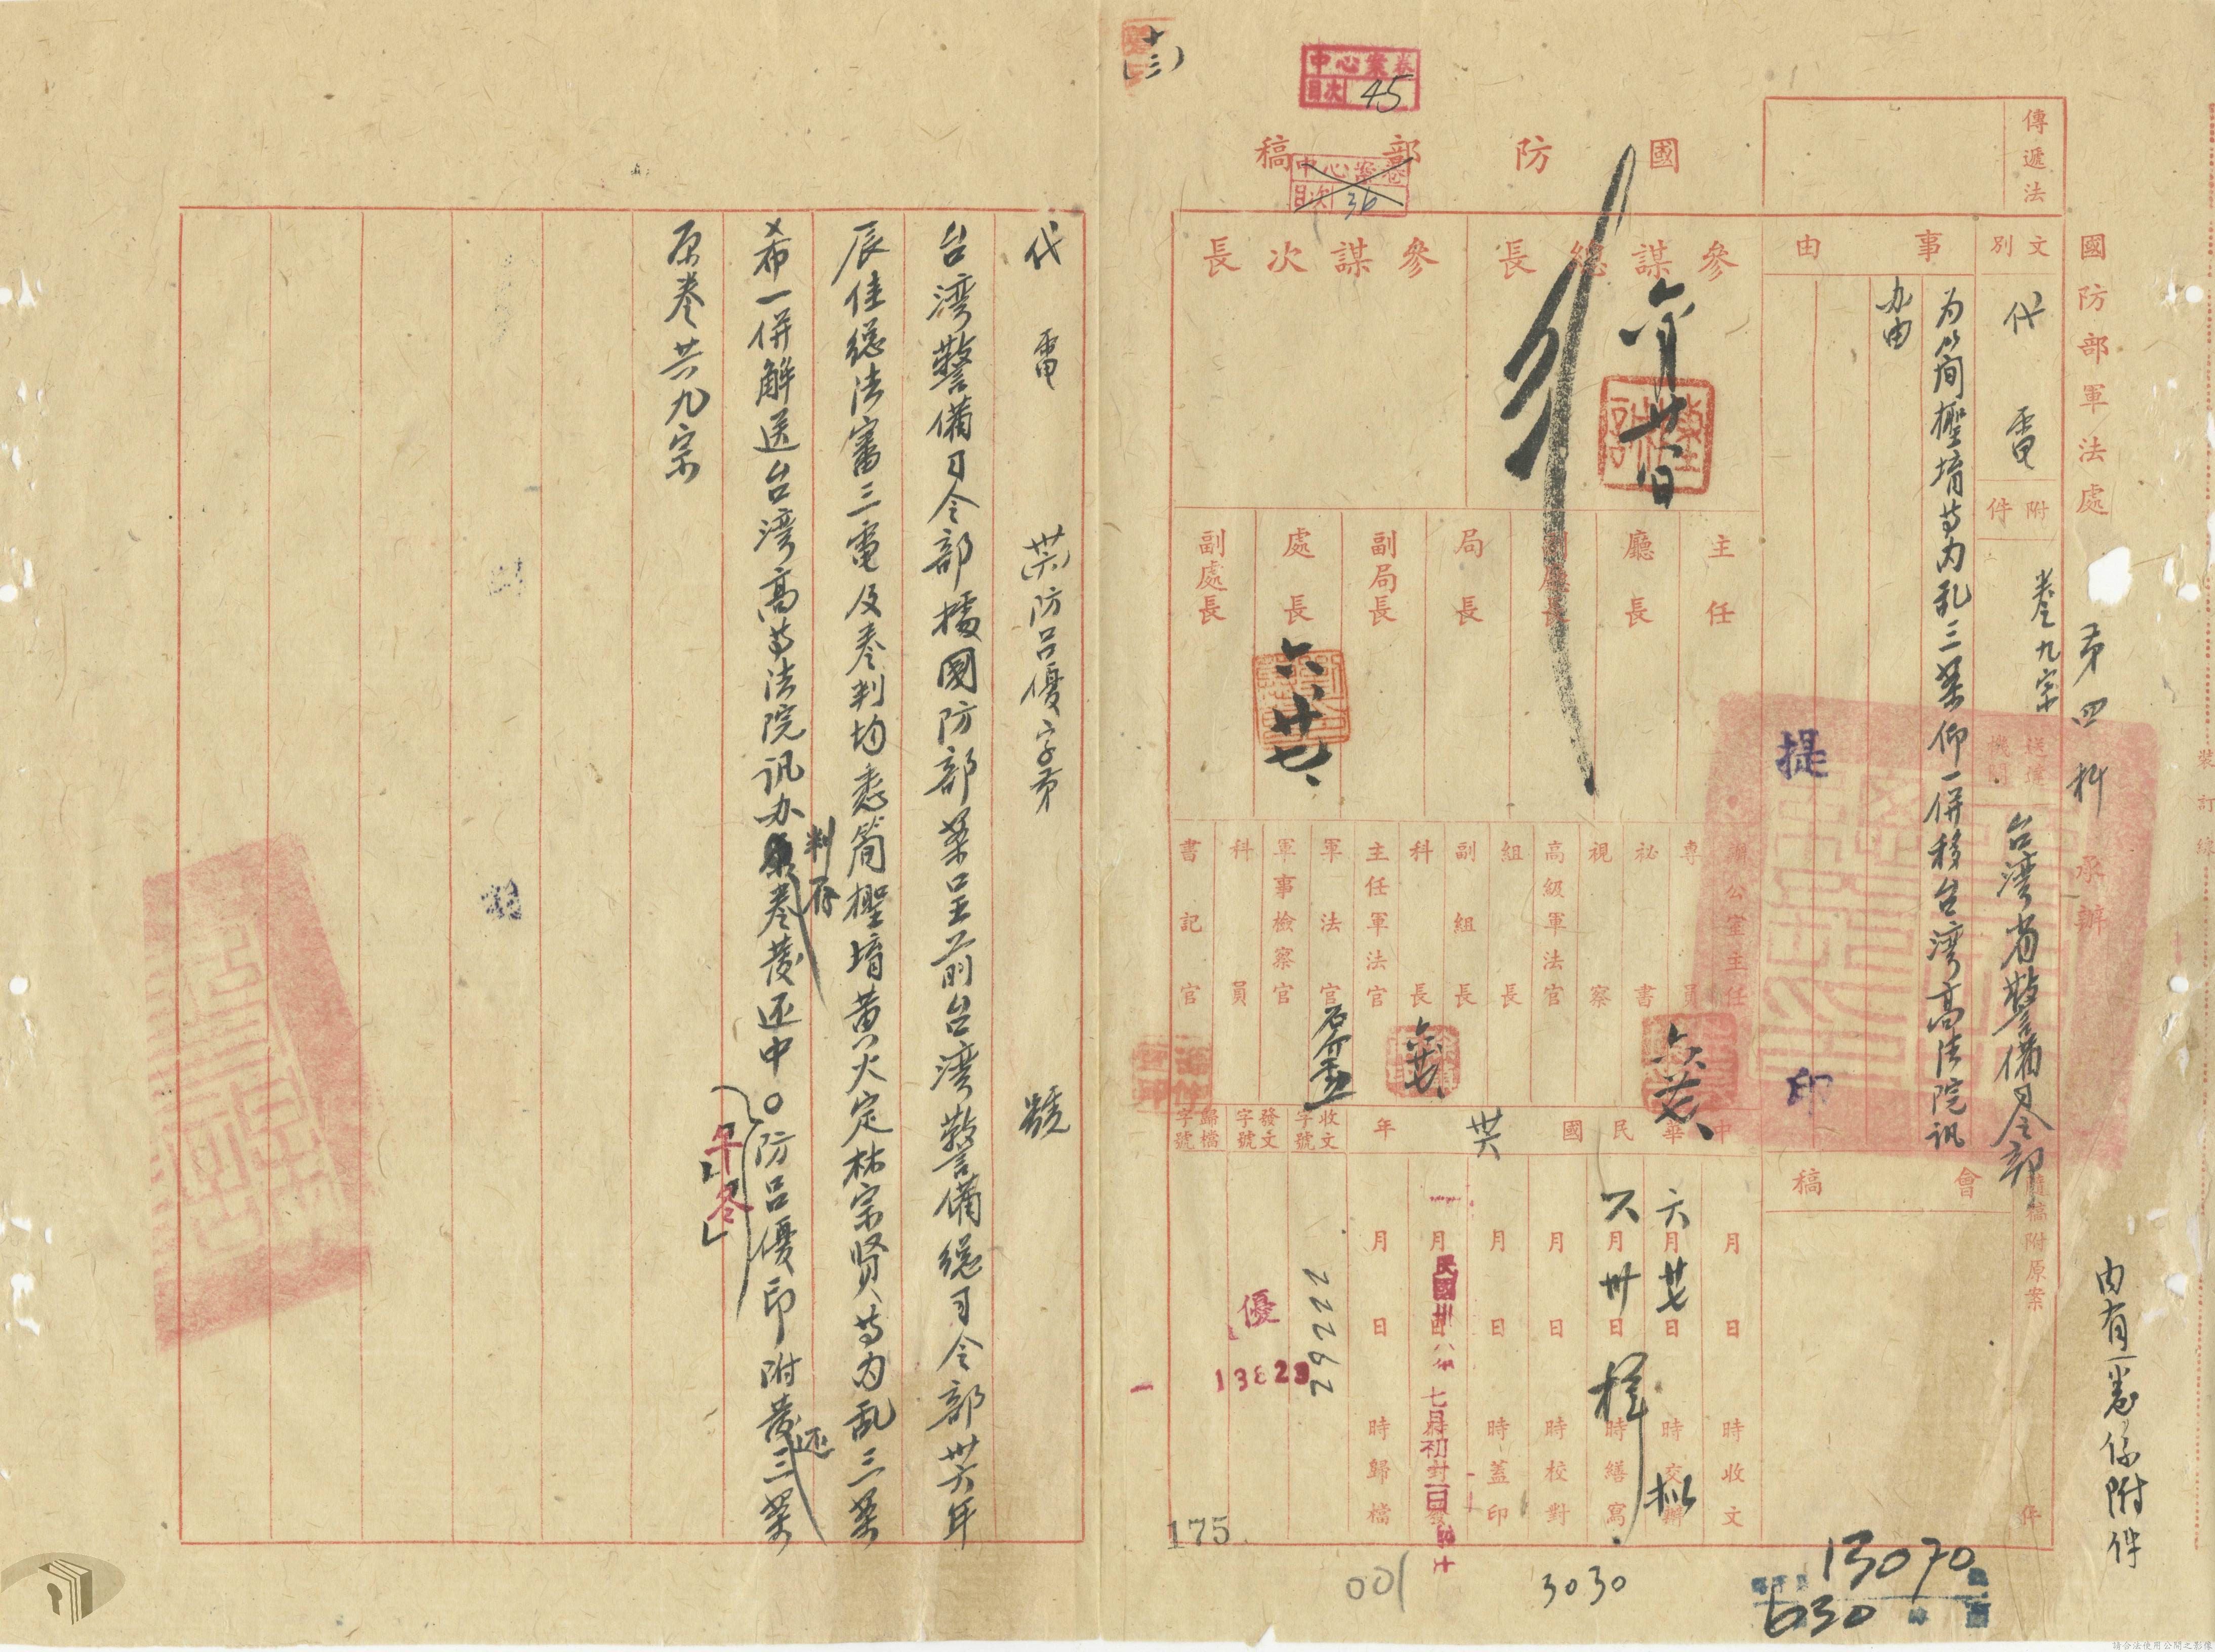 裝訂線
國防部軍法處
第四科
承辦
內有一卷係附件
傳遞法
文別
代電
附件
卷九宗
送達機關
台湾省警備司令部
擬稿附原案
件
事由
为简樫堉等为乱三案仰一併移台湾高法院訊
办由
提
印
會稿
國防部稿
中心案卷
目次 45
中心案卷
目次 36
(十三)
參謀總長
六月廿八日
參謀次長
主任
廳長
副廳長
局長
副局長
處長
六、廿七、
副處長
辦公室主任
專員
六、廿七、
秘書
視察
高級軍法官
組長
副組長
科長
六、廿七、
主任軍法官
軍法官
軍事檢察官
科員
書記官
中華民國卅八年
月日時收文
六月廿七日時交辦
擬
六月卅日時繕寫
月日時校對
月日時蓋印
民國卅八年七月初二日
月日時歸檔
收文字號
29222
發文字號
優
13823
歸檔字號
175
001
3030
13070
630
代電
卅八防呂優字第
號
台湾警備司令部據國防部部案呈前台湾警備總司令部卅八年
辰佳總法審三電及卷判均悉简樫堉黄火定林宗贤等为乱三案
希一併解送台湾高等法院訊办
判存
卷發还中〇防呂優印附發三案
还
午
冬
原卷共九宗